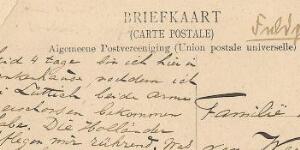 BRIEFKAART
(CARTE POSTALE)
Feldp
Algemeene Postvereeniging (Union postale universelle)
seid 4 tage bin ich hier in
nachdem ich
in Lüttich beide Arme
zerschossen bekommen
habe. Die Holländer
pflegen mir rührend. Was
Familie